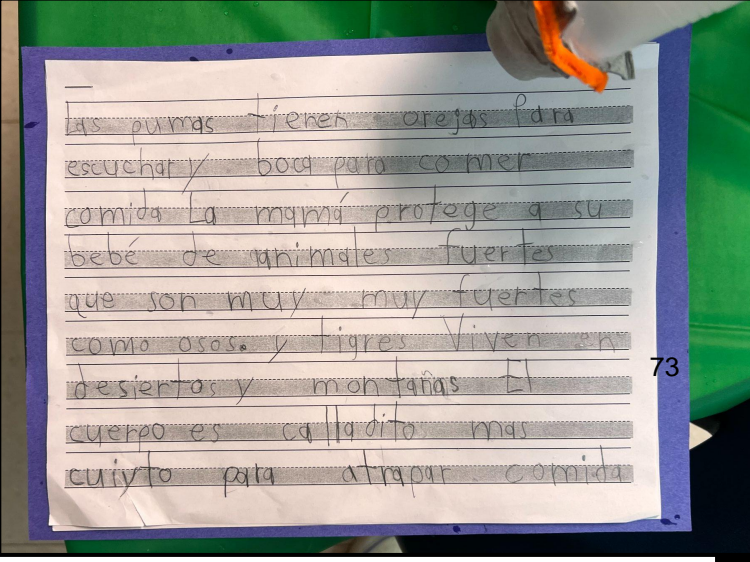 Las pumas tienen orejas Para
escuchar y boca para comer
comida La mamá protege a su
bebé de animales fuertes
que son muy muy fuertes
como osos. y tigres Viven en
73
desiertos y montañas El
cuerpo es calladito mas
cuiyto para atrapar comida